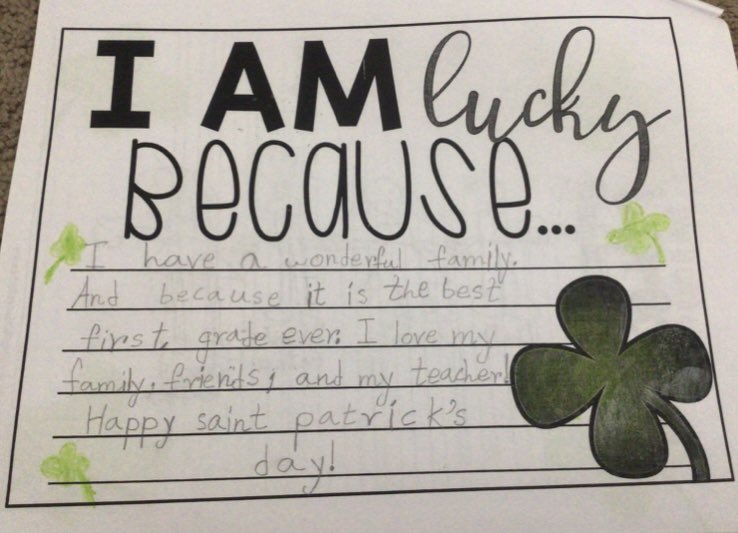 I AM lucky
BECAUSE...
I have a wonderful family.
And because it is the best
first, grade ever. I love my
family, friends, and my teacher!
Happy saint patrick's
day!